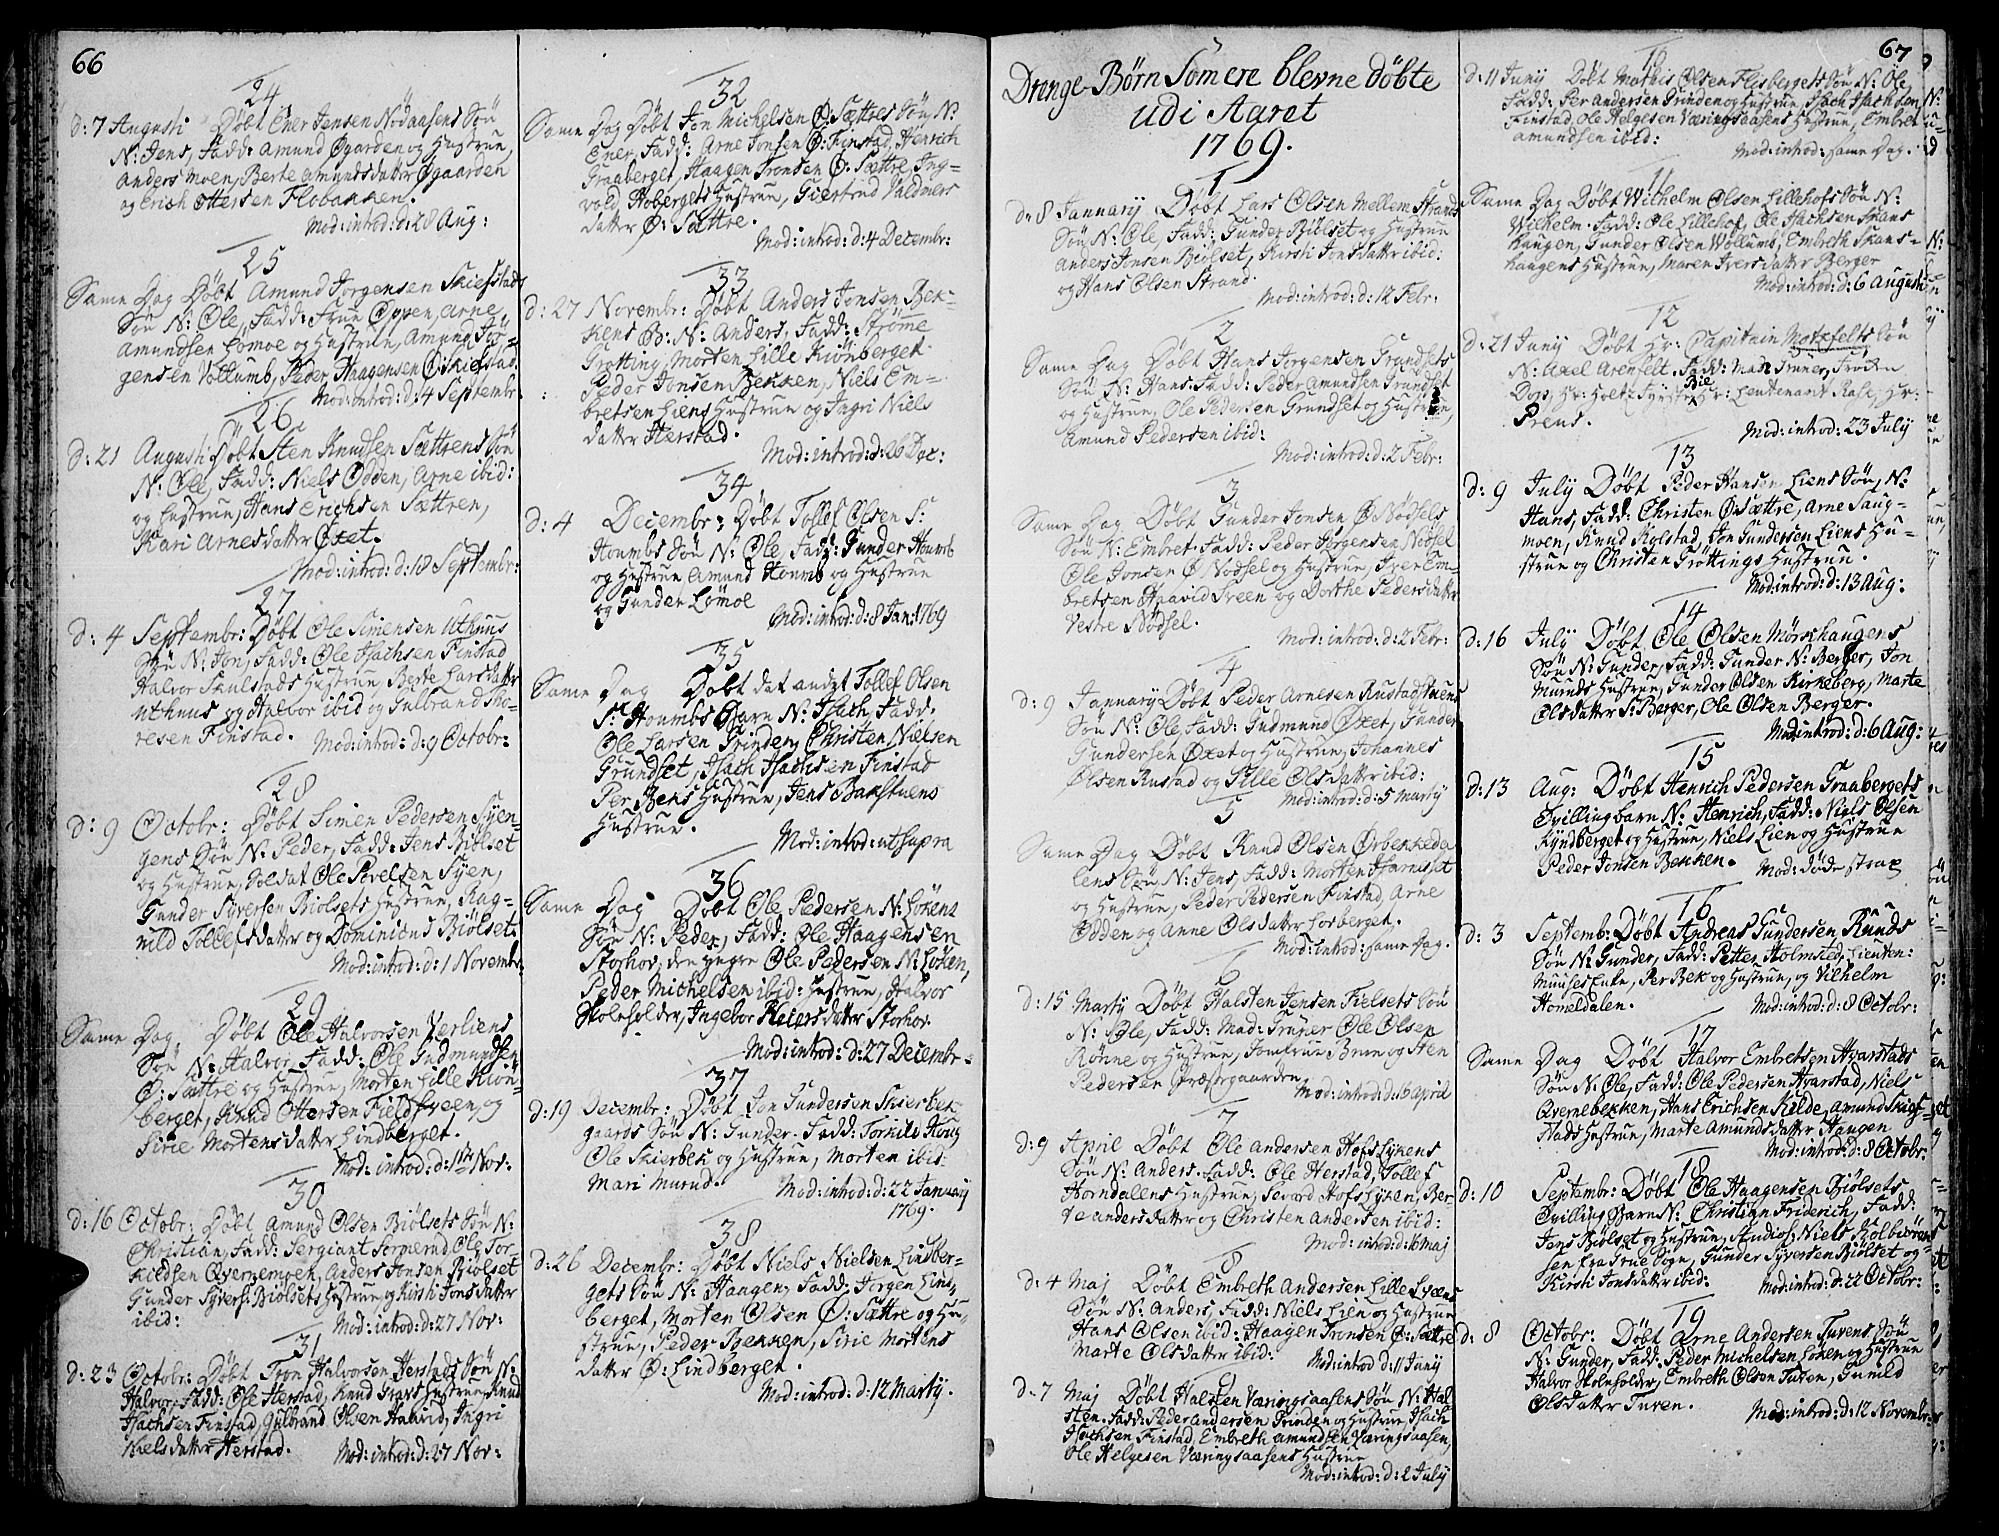 66
24
d: 7 Augusti Døbt Ener Jensen Nödaasens Sön
N: Jens, Fadd: Amund Øgarden og Hustrue,
Anders Moen, Berte Amundsdatter Øgaarden
og Erich Ottersen Flobakken.
Mod: introd: d: 28 Aug:
25
Same Dag Døbt Amund Jorgensen Skiefstads
Søn N: Ole, Fadd: Frue Oppen, Arne
Amundsen Lømoe og Hustrue, Amund Jør-
gensen Vollumb, Peder Haagensen Ø: Skiefstad.
Mod: introd: d: 4 Septembr:
26
d: 21 Augusti Døbt Sten Knudsen Sættrens Søn
N: Ole, Fadd: Niels Odden, Arne ibid:
og Hustrue, Hans Erichsen Sættren,
Kari Arnesdatter Øxet.
Mod: introd: d: 18 Septembr:
27
d: 4 Septembr: Døbt Ole Simensen Uthuus
Søn N: Jon, Fadd: Ole Isachsen Finstad
Halvor Skulstads Hustrue, Berte Larsdatter
Uthuus og Halvor ibid og Gulbrand Tho-
resen Finstad. Mod: introd: d: 9 Octobr:
28
d: 9 Octobr: Døbt Simen Pedersen Syen-
gens Søn N: Peder, Fadd: Jens Biölset
og Hustrue, Soldat Ole Povelsen Syen,
Gunder Syversen Biölsets Hustrue, Rag-
nild Tollefsdatter og Dominicus Biölset.
Mod: introd: d: 1 Novembr:
29
Same Dag. Døbt Ole Halvorsen Verliens
Søn N: Halvor, Fadd: Ole Gudmundsen
Ø: Sættre og Hustrue, Morten Lille Kiön-
berget, Knud Ottersen Fieldsveen, og
Sirie Mortensdatter Lindberget.
Mod: introd: d: 11te Nov:
30
d: 16 Octobr: Døbt Amund Olsen Biölsets Søn N:
Christian, Fadd: Sergiant Ole Tor-
kildsen Qvernemoen, Anders Jonsen Biölset
Gunder Syvers: Biölsets Hustrue, og Kirsti Jonsdatter
ibid: Mod: introd: d: 27 Nov:
31
d: 23 Octobr: Døbt Tron Halvorsen Herstads Søn N:
Halvor, Fadd: Ole Herstad, Knud Hustrue, Knud
Isachsen Finstad, Gulbrand Olsen Haavid, Ingri
Nielsdatter Herstad. Mod: introd: d: 27 Nov:
32
Same Dag Døbt Jon Michelsen Ø: Sættres Søn N:
Ener, Fadd: Arne Jonsen Ø: Finstad, Henrich
Graaberget, Haagen Tronsen Ø: Sættre, Ing-
vold Hobergets Hustrue, Giertrud Valdmers
datter Ø: Sættre.
Mod: introd: d: 4 Decembr:
33
d: 27 Novembr: Døbt Anders Jonsen Bek-
kens B: N: Anders, Fadd: Strømme
Grötting, Morten Lille Kiönberget
Peder Jonsen Bekken, Niels Em-
bretsen Liens Hustrue og Ingri Niels
datter Herstad.
Mod: introd: d: 26 Dec:
34
d: 4 Decembr: Døbt Tollef Olsen S:
Houmbs Søn N: Ole, Fadd: Gunder Houmb
og Hustrue Amund Houmb og Hustrue
og Gunder Lömoe
Mod: introd: d: 8 Jan: 1769
35
Same Dag Døbt det andet Tollef Olsen
S: Houmbs Barn N: Isach, Fadd:
Ole Larsen Grinden, Christen Nielsen
Grundset, Isach Isachsen Finstad
Per Beks Hustrue, Jens Bakstuens
Hustrue.
Mod: introd: ut supra
36
Same Dag Døbt Ole Pedersen N: Lökens
Søn N: Peder, Fadd: Ole Haagensen
Storhov, den yngre Ole Pedersen N: Löken,
Peder Michelsen ibid: Hustrue, Halvor
Skoleholder, Ingebor Reiersdatter Storhov.
Mod: introd: d: 27 Decembr.
37
d: 19 Decembr: Døbt Jon Gundersen Skierbek-
gaards Søn N: Gunder. Fadd: Torkild Houg
Ole Skierbek og Hustrue, Morten ibid.
Mari Murud. Mod: introd: d: 22 January
1769.
38
d: 26 Decembr: Døbt Niels Nielsen Lindber-
gets Søn N: Haagen, Fadd: Jorgen Lind-
berget, Morten Olsen Ø: Sættre og Hu-
strue, Peder Bekken, Sirie Mortens
datter Ø: Lindberget.
Mod: introd: d: 12 Marty.
67
Drenge-Børn Som ere blevne döbte
udi Aaret
1769.
1
d: 8 January Døbt Lars Olsen Mellem Strands
Søn N: Ole, Fadd: Gunder Biölset og Hustrue
Anders Jonsen Biölset, Kirsti Jonsdatter ibid:
og Hans Olsen Strand.
Mod: introd: d: 12 Febr:
2
Same Dag Døbt Hans Jorgensen Grundsets
Søn N: Hans. Fadd: Peder Amundsen Grundset
og Hustrue, Ole Pedersen Grundset og Hustrue,
Amund Pedersen ibid:
Mod: introd: d: 2 Febr:
3
Same Dag Døbt Gunder Jonsen Ø Nödsels
Søn N: Embret. Fadd: Peder Jörgensen Nödsel
Ole Jonsen Ø Nödsel og Hustrue, Iver Em-
bretsen Haavid Sveen og Dorthe Pedersdatter
Vestre Nödsel.
Mod: introd: d: 2 Febr:
4
d: 9 January Døbt Peder Arnesen Rustad
Søn N: Ole, Fadd: Gudmund Øxet, Gunder
Gundersen Øxet og Hustrue, Johannes
Olsen Rustad og Pille Olsdatter ibid:
Mod: introd: d: 5 Marty
5
Same Dag Døbt Knud Olsen Orbekkeda
lens Søn N: Jens, Fadd: Morten Hiarnesset
og Hustrue, Peder Pedersen Finstad, Arne
Odden og Anne Olsdatter Losberget.
Mod: introd: same Dag.
6
d: 15 Marty Døbt Halsten Jensen Fielsets Søn
N: Ole, Fadd: Mad: Gruner Ole Olsen
Rönne og Hustrue, Jomfrue Brun og Sten
Pedersen Præstegaarden
Mod: introd: d: 16 April
7
d: 9 April Døbt Ole Andersen Hofs Lykens
Søn N: Anders. Fadd: Ole Herstad, Tollef
Horndallens Hustrue, Sevard Hofs Lyken, Ber-
te Andersdatter og Christen Andersen ibid:
Mod: introd: d: 16 Maj
8
d: 4 Maj Døbt Embreth Andersen Lille Lyeens
Søn N: Anders, Fadd: Niels Lien og Hustrue
Hans Olsen ibid: Haagen Tronsen Ø: Sættre
Marte Olsdatter ibid: Mod: introd d: 11 Juny
9
d: 7 Maj Døbt Halsten Væringsaasens Søn N: Hal-
sten. Fadd: Peder Andersen Grinden og Hustrue Isach
Isachsen Finstad, Embreth Amundsen Væringsaasen,
Ole Helgesen Væringsaasens Hustrue
Mod: introd: d: 2 July
10
d: 11 Juny Døbt Mathis Olsen Flisbergets Søn N: Ole
Fadd: Per Andersen Grinden og Hustrue, Isach Isachsen
Finstad, Ole Helgesen Væringsaasens Hustrue, Embret
Amundsen ibid:
Mod: introd: same Dag.
11
Same Dag Døbt Wilhelm Olsen Lillehofs Søn N:
Wilhelm. Fadd: Ole Lillehof, Ole Isachsen Skans
haugen, Gunder Olsen Wollumb, Embreth Skans-
haugens Hustrue, Maren Iversdatter Berger
Mod: introd: d: 6 Augusti
12
d: 21 Juny Døbt Hr: Capitain Motzfelts Søn
N: Axel Arenfelt. Fadd: Mad: Gruner, Froken
Dop, Hr: Holtz Hr: Lieutenant Rask, Hr:
Preus.
Mod: introd: 23 July
13
d: 9 July Døbt Peder Hansen Liens Søn, N:
Hans, Fadd: Christen Ø: Sættre, Arne Saug-
moen, Knud Kolstad, Jon Gundersen Liens Hu-
strue og Christen Gröttings Hustrue.
Mod: introd: d: 13 Aug:
14
d: 16 July Døbt Ole Olsen Mörkhaugens
Søn N: Gunder, Fadd: Gunder N: Berger, Jon
Muruds Hustrue, Gunder Olsen Kirkeberg, Marte
Olsdatter S: Berger, Ole Olsen Berger.
Mod: introd: d: 6 Aug:
15
d: 13 Aug: Døbt Henrich Pedersen Graabergets
Tvillingbarn N: Henrich, Fadd: Niels Olsen
Kyndberget og Hustrue, Niels Lien og Hustrue
Peder Jonsen Bekken. Mod: döde strax
16
d: 3 Septemb: Døbt Andreas Gundersen Ruuds
Søn N: Gunder, Fadd: Petter Holmsted, Lieuten:
Muuses Enke, Per Bek og Hustrue, og Vilhelm
Homeldalen. Mod: introd: d: 8 Octobr:
17
Same Dag Døbt Halvor Embretsen Hvarstads
Søn N: Ole, Fadd: Ole Pedersen Hvarstad, Niels
Qvernebekken, Hans Erichsen Kilde, Amund Skief-
stads Hustrue, Marte Amundsdatter Haugen
Mod: introd: d: 8 Octobr:
18
d: 10 Septembr: Døbt Ole Haagensen Biölsets
Tvilling Barn N: Christian Friderich, Fadd:
Jens Biölset og Hustrue, Studios: Niels
sen fra Frue Sogn, Gunder Syversen Biölset og
Kirsti Jonsdatter ibid: Mod: introd: d: 22 Octobr:
19
d: 8 Octobr: Døbt Arne Andersen Turens Søn
N: Gunder, Fadd: Peder Michelsen Löken og Hustrue
Halvor Skoleholder, Embreth Olsen Turen, Gunild
Olsdatter Turen.
Mod: introd: d: 12 Novembr: